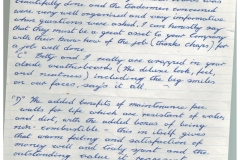 beautifully done, and the tradesmen concerned
were very well organised and very informative
when questions were asked. I can honestly say
that they must be a great asset to your company
with their know-how of the job (thanks chaps) for
a job well done.
Betty and I really are wrapped in your
weatherboards, the deluxe look, feel,
and neatness) including the big smiles
on our faces, says it all -
The added benefits of maintenance free
walls for life which are resistant of water,
and dirt, with the added bonus of being
non-combustible - this in itself gives
that warm feeling and satisfaction of
money well and truly spent and the
outstanding value